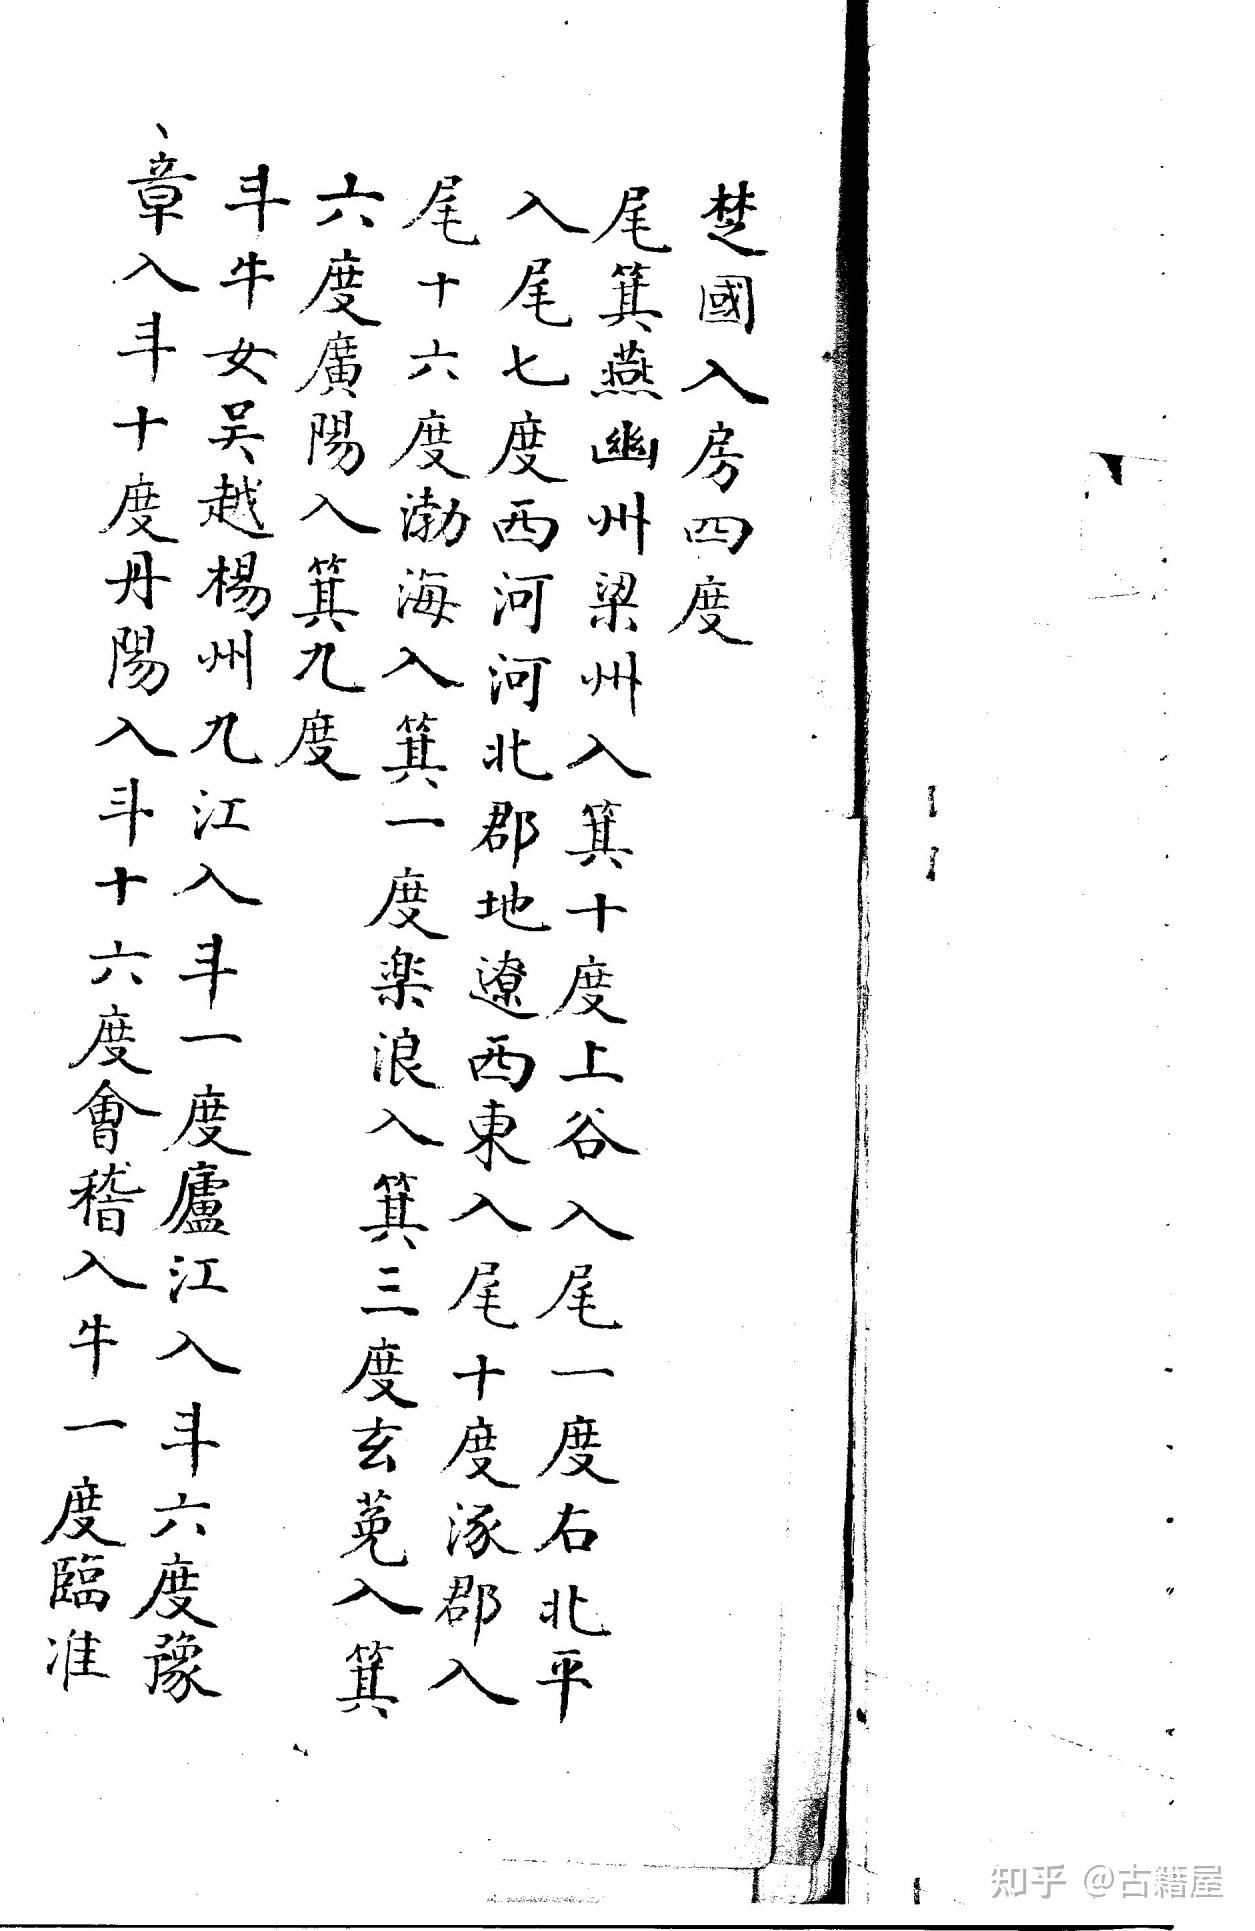 楚國入房四度
尾箕燕幽州梁州入箕十度上谷入尾一度右北平
入尾七度西河河北郡地遼西東入尾十度涿郡入
尾十六度渤海入箕一度楽浪入箕三度玄菟入箕
六度廣陽入箕九度
斗牛女吴越楊州九江入斗一度廬江入斗六度豫
章入斗十度丹陽入斗十六度會稽入牛一度臨淮
知乎 @古籍屋